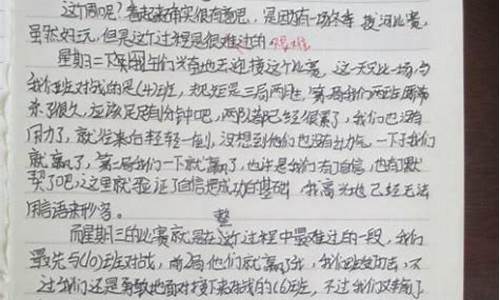 这个周呢？看起来确实很有意思，是因为有一场冬季拔河比赛，
虽然好玩，但是这个过程是很难过的 艰难
星期二下午，同学们兴奋地去迎接这个比赛，这一天又比一场与
我们班对战的是(4)班，规矩是三局两胜，第一局我们两班
来了很久，应该足足有分钟吧，两队都已经很累了，我们也没有
用力了，就往来自轻轻一倒，没想到他们也没有力气，一下子我们
就赢了，第二局我们一下就赢了，也许是我们有了自信，也有默
契了吧，这里就验证了自信把成功的基础，我高兴地已经无法
用言语来形容。
整
而星期三的比赛就是在这个过程中最难过的一段，我们
最先与(10)班对战，前两局他们就赢了我，我们班
过我们还是勇敢地面对接下来对战的(6)班，不过我们又输了